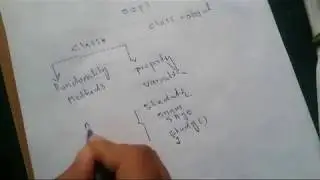 OOPS
class object
class
property
variable
Functionality
Methods
student
name
age
study()